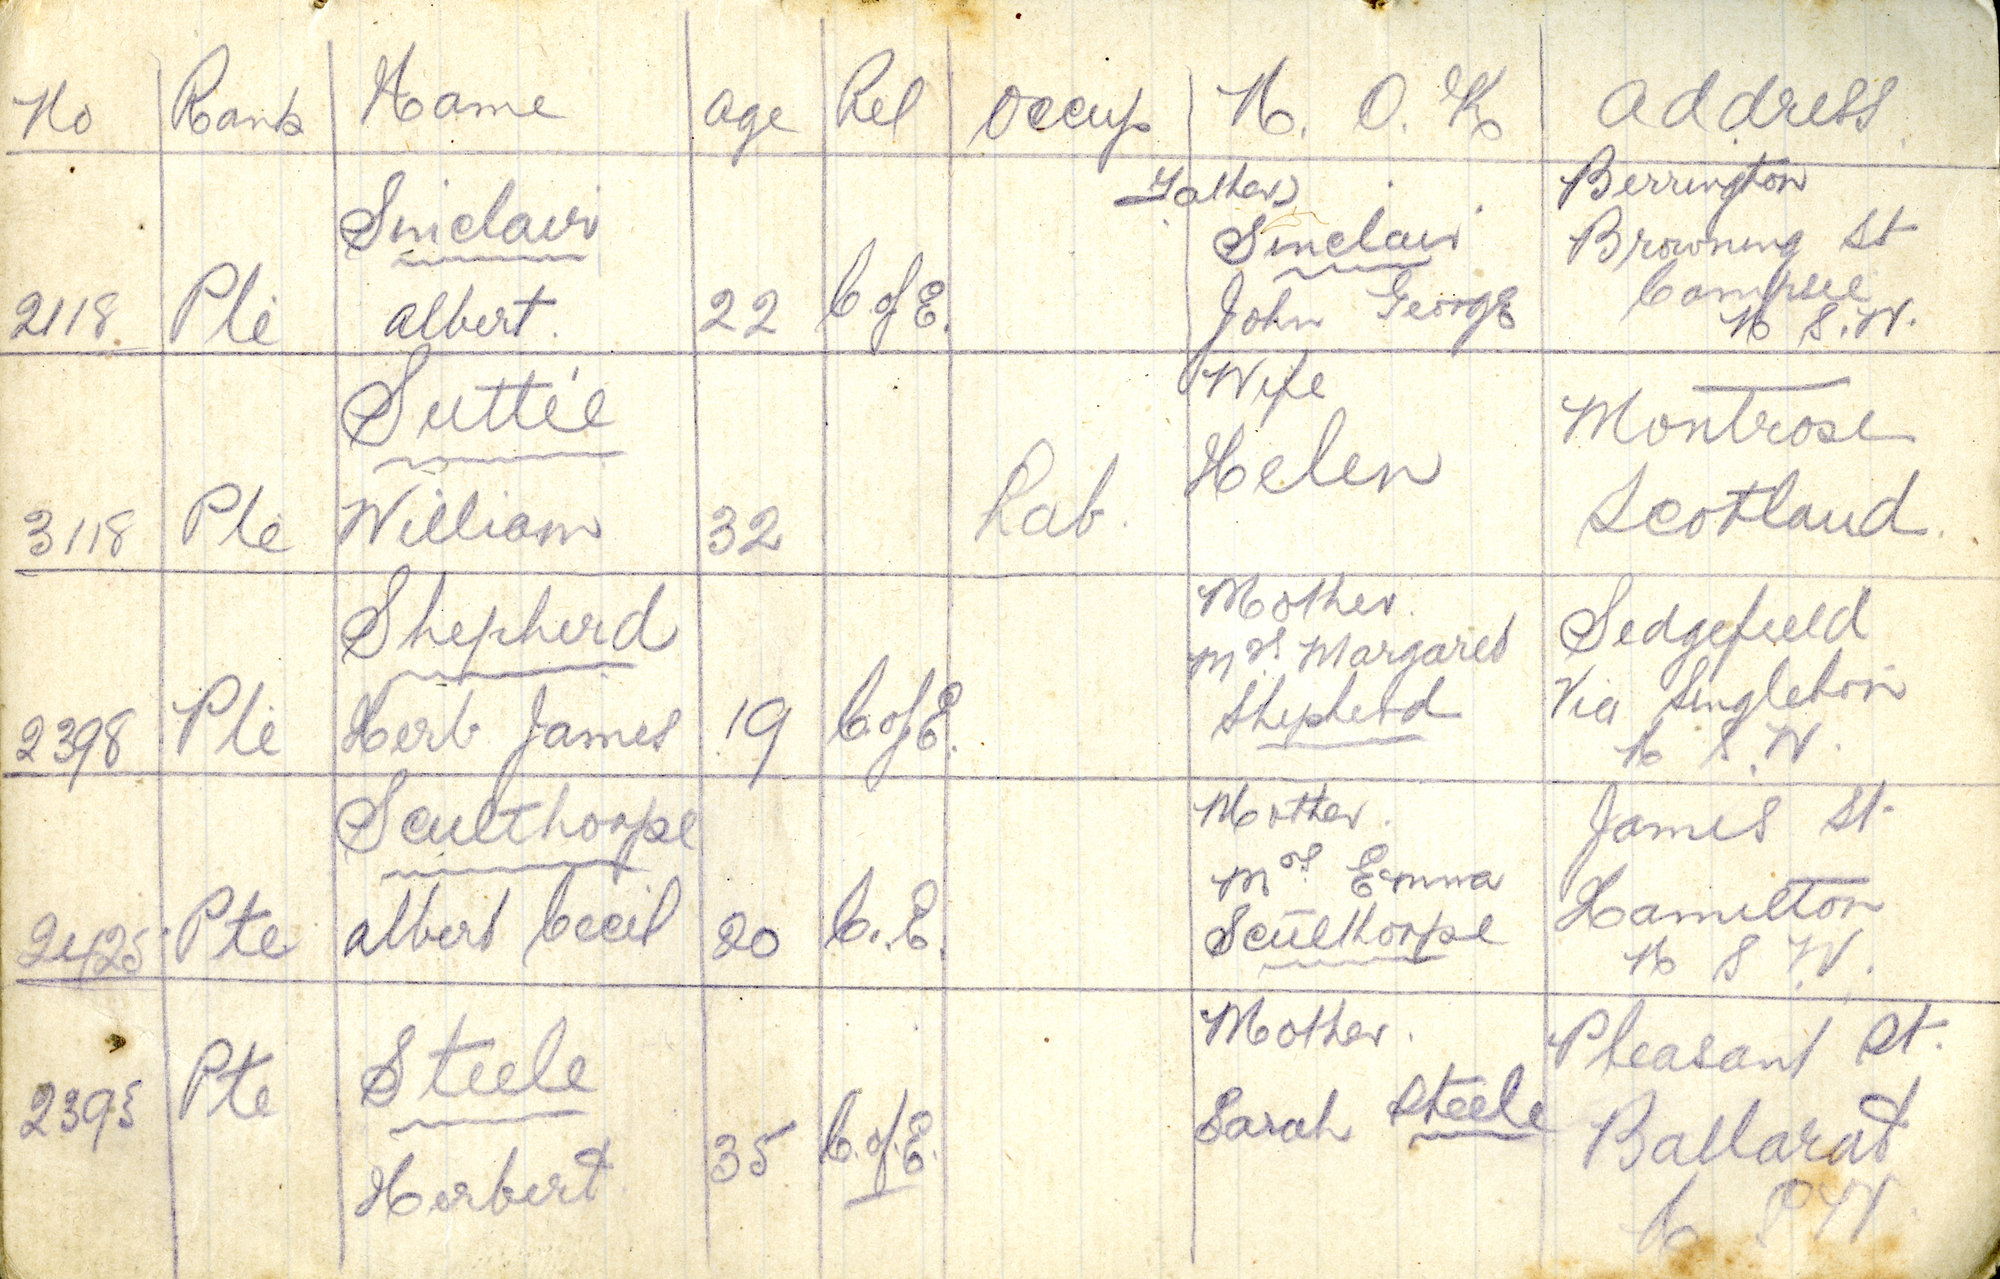 No Rank Name age Rel Occup N. O. K address
Father Berrington
Sinclair Sinclair Browning St
2118 Pte albert. 22 C of E. John George Campsee N S.W.
Suttie Wife Montrose
3118 Pte William 32 Lab. Helen Scotland.
Shepherd Mother. Sedgefield
Mrs. Margaret Via Singleton
2398 Pte Herb James 19 C. of E. Shepherd N S.W.
Sculthorpe Mother. James St.
Mrs. Emma Hamilton
2425 Pte albert Cecil 20 C. E. Sculthorpe N S W.
Steele Mother. Pleasant St.
2395 Pte Herbert 35 C. of E. Sarah Steele Ballarat